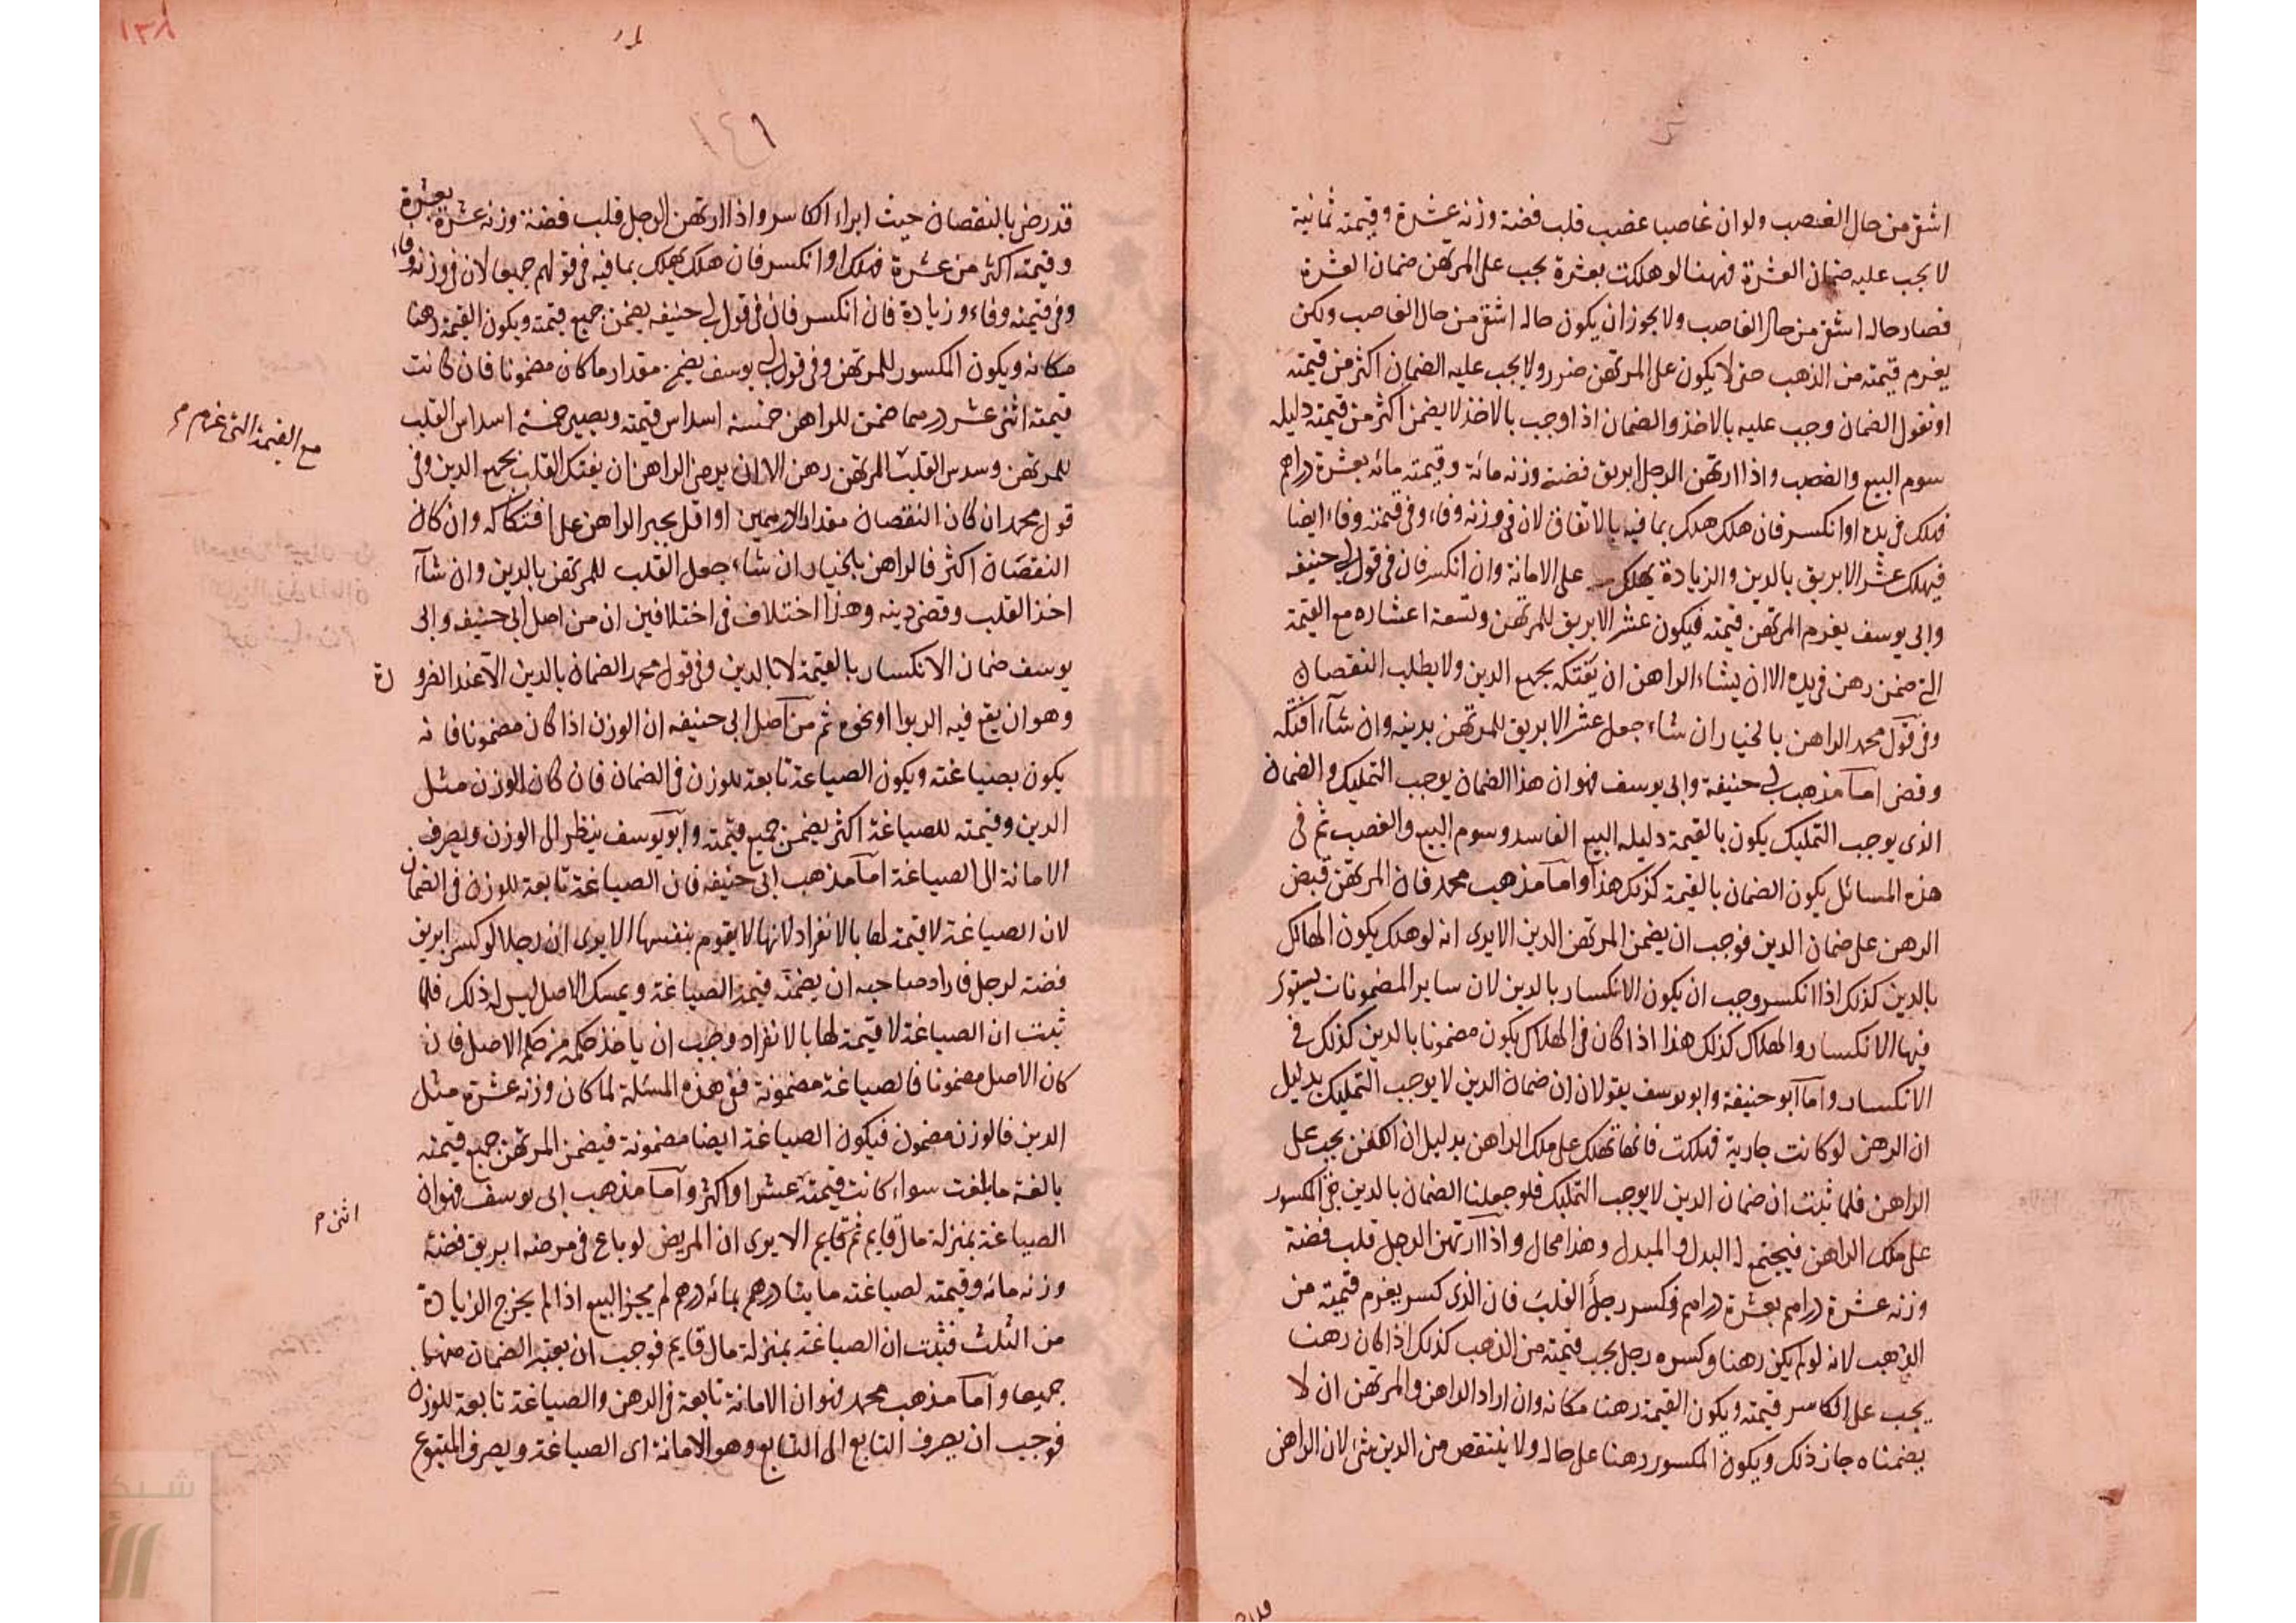 اشق من حال الغصب ولو ان غاصبا غصب قلب فضة وزنه عشرة وقيمته ثمانية
لا يجب عليه ضمان العشرة فههنا لو هلكت بعشرة يجب على المرتهن ضمان العشرة
فصار حاله اشق من حال الغاصب ولا يجوز ان يكون حاله اشق من حال الغاصب ولكن
يغرم قيمته من الذهب حتى لا يكون على المرتهن ضرر ولا يجب عليه الضمان اكثر من قيمته
او نقول الضمان وجب عليه بالاخذ والضمان اذا وجب بالاخذ لا يضمن اكثر من قيمته دليله
سوم البيع والغصب واذا ارتهن الرجل ابريق فضة وزنه مائة وقيمته مائه بعشرة دراهم
فهلك في يده او انكسر فان هلك هلك بما فيه بالاتفاق لان في وزنه وفاء وفي قيمته وفاء ايضا
فيهلك عشر الابريق بالدين والزيادة يهلك على الامانة وان انكسر فان في قول ابي حنيفه
وابي يوسف يغرم المرتهن قيمته فيكون عشر الابريق للمرتهن وتسعة اعشاره مع القيمة
التي ضمن رهن في يده الا ان يشاء الراهن ان يفتكه بجميع الدين ولا يطلب النقصان
وفي قول محمد الراهن بالخيار ان شاء جعل عشر الابريق للمرتهن بدينه وان شاء افتكه
وقضى اما مذهب ابي حنيفة وابي يوسف فهو ان هذا الضمان يوجب التمليك والضمان
الذي يوجب التمليك يكون بالقيمة دليله البيع الفاسد وسوم البيع والغصب ثم في
هذه المسائل يكون الضمان بالقيمة كذلك هذا واما مذهب محمد فان المرتهن قبض
الرهن على ضمان الدين فوجب ان يضمن المرتهن الدين الا يرى انه لو هلك يكون الهالك
بالدين كذلك اذا انكسر وجب ان يكون الانكسار بالدين لان ساير المضمونات يستوى
فيها الانكسار والهلاك كذلك هذا اذا كان في الهلاك يكون مضمونا بالدين كذلك في
الانكسار واما ابو حنيفة وابو يوسف يقولان ان ضمان الدين لا يوجب التمليك بدليل
ان الرهن لو كانت جارية فهلكت فانها تهلك على ملك الراهن بدليل ان الكفن يجب على
الراهن فلما ثبت ان ضمان الدين لا يوجب التمليك فلو جعلنا الضمان بالدين بقي المكسور
على ملك الراهن فيجتمع له البدل والمبدل وهذا محال واذا ارتهن الرجل قلب فضة
وزنه عشرة دراهم بعشرة دراهم فكسر رجل القلب فان الذي كسر يغرم قيمته من
الذهب لانه لو لم يكن رهنا وكسره رجل يجب قيمته من الذهب كذلك اذا كان رهنا
يجب على الكاسر قيمته ويكون القيمة رهنا مكانه وان اراد الراهن والمرتهن ان لا
يضمناه جاز ذلك ويكون المكسور رهنا على حاله ولا ينتقص من الدين شئ لان الراهن
١٣٨
قد رضى بالنقصان حيث ابراء الكاسر واذا ارتهن الرجل قلب فضة وزنه عشرة بعشرة
وقيمته اكثر من عشرة فهلك او انكسر فان هلك يهلك بما فيه في قولهم جميعا لان في وزنه وفاء
وفي قيمته وفاء وزيادة فان انكسر فان في قول ابي حنيفه يضمن جميع قيمته ويكون القيمة رهنا
مكانه ويكون المكسور للمرتهن وفي قول ابي يوسف يضمن مقدار ما كان مضمونا فان كانت
قيمته اثنى عشر درهما ضمن للراهن خمسة اسداس قيمته ويصير خمسة اسداس القلب
مع القيمة التي غرم م
للمرتهن وسدس القلب للمرتهن رهن الا ان يرضى الراهن ان يفتك القلب بجميع الدين وفي
قول محمد ان كان النقصان مقدار الدرهمين او اقل يجبر الراهن على افتكاكه وان كان
النقصان اكثر فالراهن بالخيار ان شاء جعل القلب للمرتهن بالدين وان شاء
اخذ القلب وقضى دينه وهذا اختلاف في اختلافين ان من اصل ابي حنيفه وابي
يوسف ضمان الانكسار بالقيمة لا بالدين وفي قول محمد الضمان بالدين الا عند الضرورة
وهو ان يقع فيه الربوا او نحوه ثم من اصل ابي حنيفه ان الوزن اذا كان مضمونا فانه
يكون بصياغته ويكون الصياغة تابعة للوزن في الضمان فان كان الوزن مثل
الدين وقيمته للصياغة اكثر يضمن جميع قيمته وابو يوسف ينظر الى الوزن ويصرف
الامانة الى الصياغة اما مذهب ابي حنيفه فان الصياغة تابعة للوزن في الضمان
لان الصياغة لا قيمة لها بالانفراد لانها لا يقوم بنفسها الا يرى ان رجلا لو كسر ابريق
فضة لرجل فاراد صاحبه ان يضمنه قيمة الصياغة ويمسك الاصل ليس له ذلك فلما
ثبت ان الصياغة لا قيمة لها بالانفراد وجب ان ياخذ حكمه من حكم الاصل فان
كان الاصل مضمونا فالصياغة مضمونة ففي هذه المسئلة لما كان وزنه عشرة مثل
الدين فالوزن مضمون فيكون الصياغة ايضا مضمونة فيضمن المرتهن جميع قيمته
بالغة ما بلغت سواء كانت قيمته عشرا او اكثر واما مذهب ابي يوسف فهو ان
اثنى م
الصياغة بمنزلة مال قايم ثم قايم الا يرى ان المريض لو باع في مرضه ابريق فضة
وزنه مائه وقيمته لصياغته مايتا درهم بمائه درهم لم يجز البيع اذا لم يخرج الزيادة
من الثلث فثبت ان الصياغة بمنزلة مال قايم فوجب ان يعتبر الضمان منهما
جميعا واما مذهب محمد فهو ان الامانة تابعة في الرهن والصياغة تابعة للوزن
فوجب ان يصرف التابع الى التابع وهو الامانة اى الصياغة ويصرف المتبوع